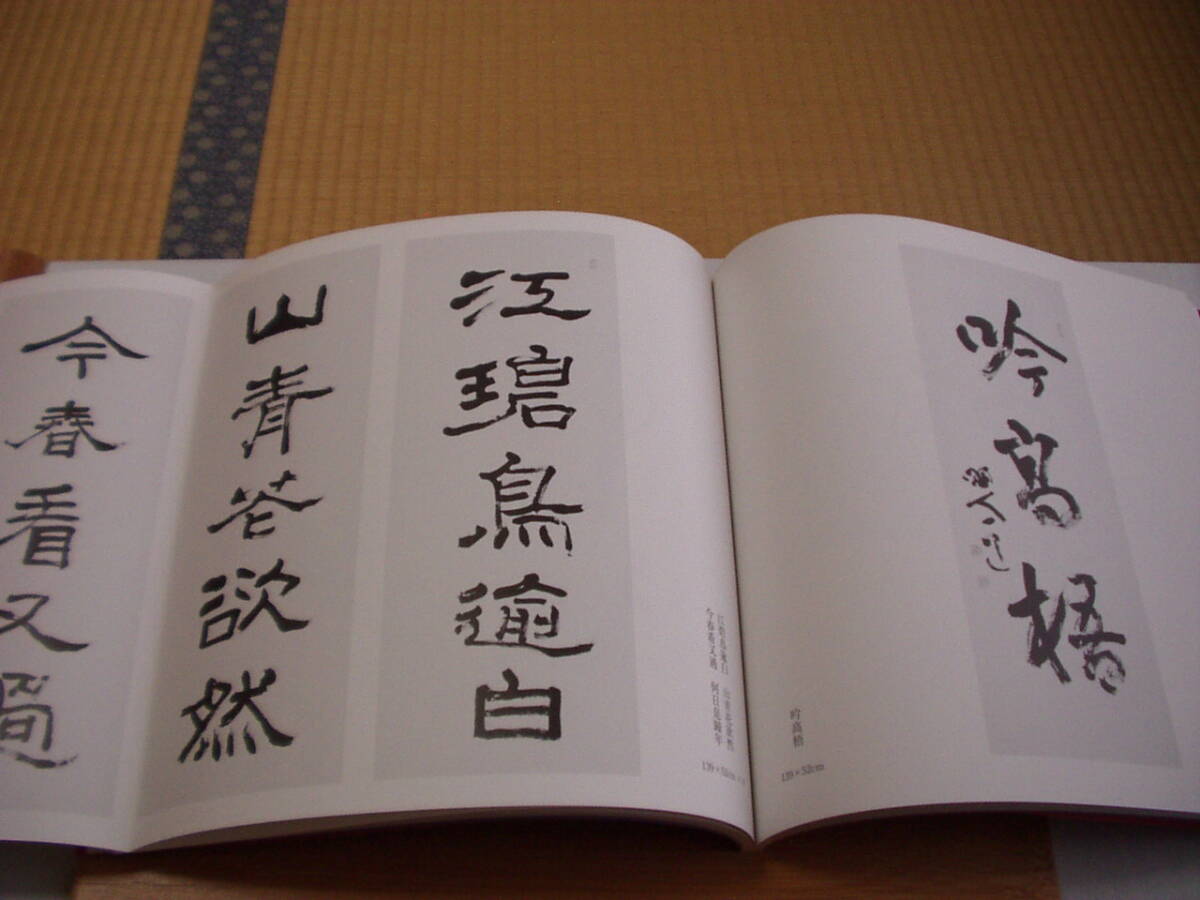 吟高梧
吟高梧
139×52cm
江碧鳥逾白
山青花欲然
今春看又過
江碧鳥逾白 山青花欲然
今春看又過 何日是歸年